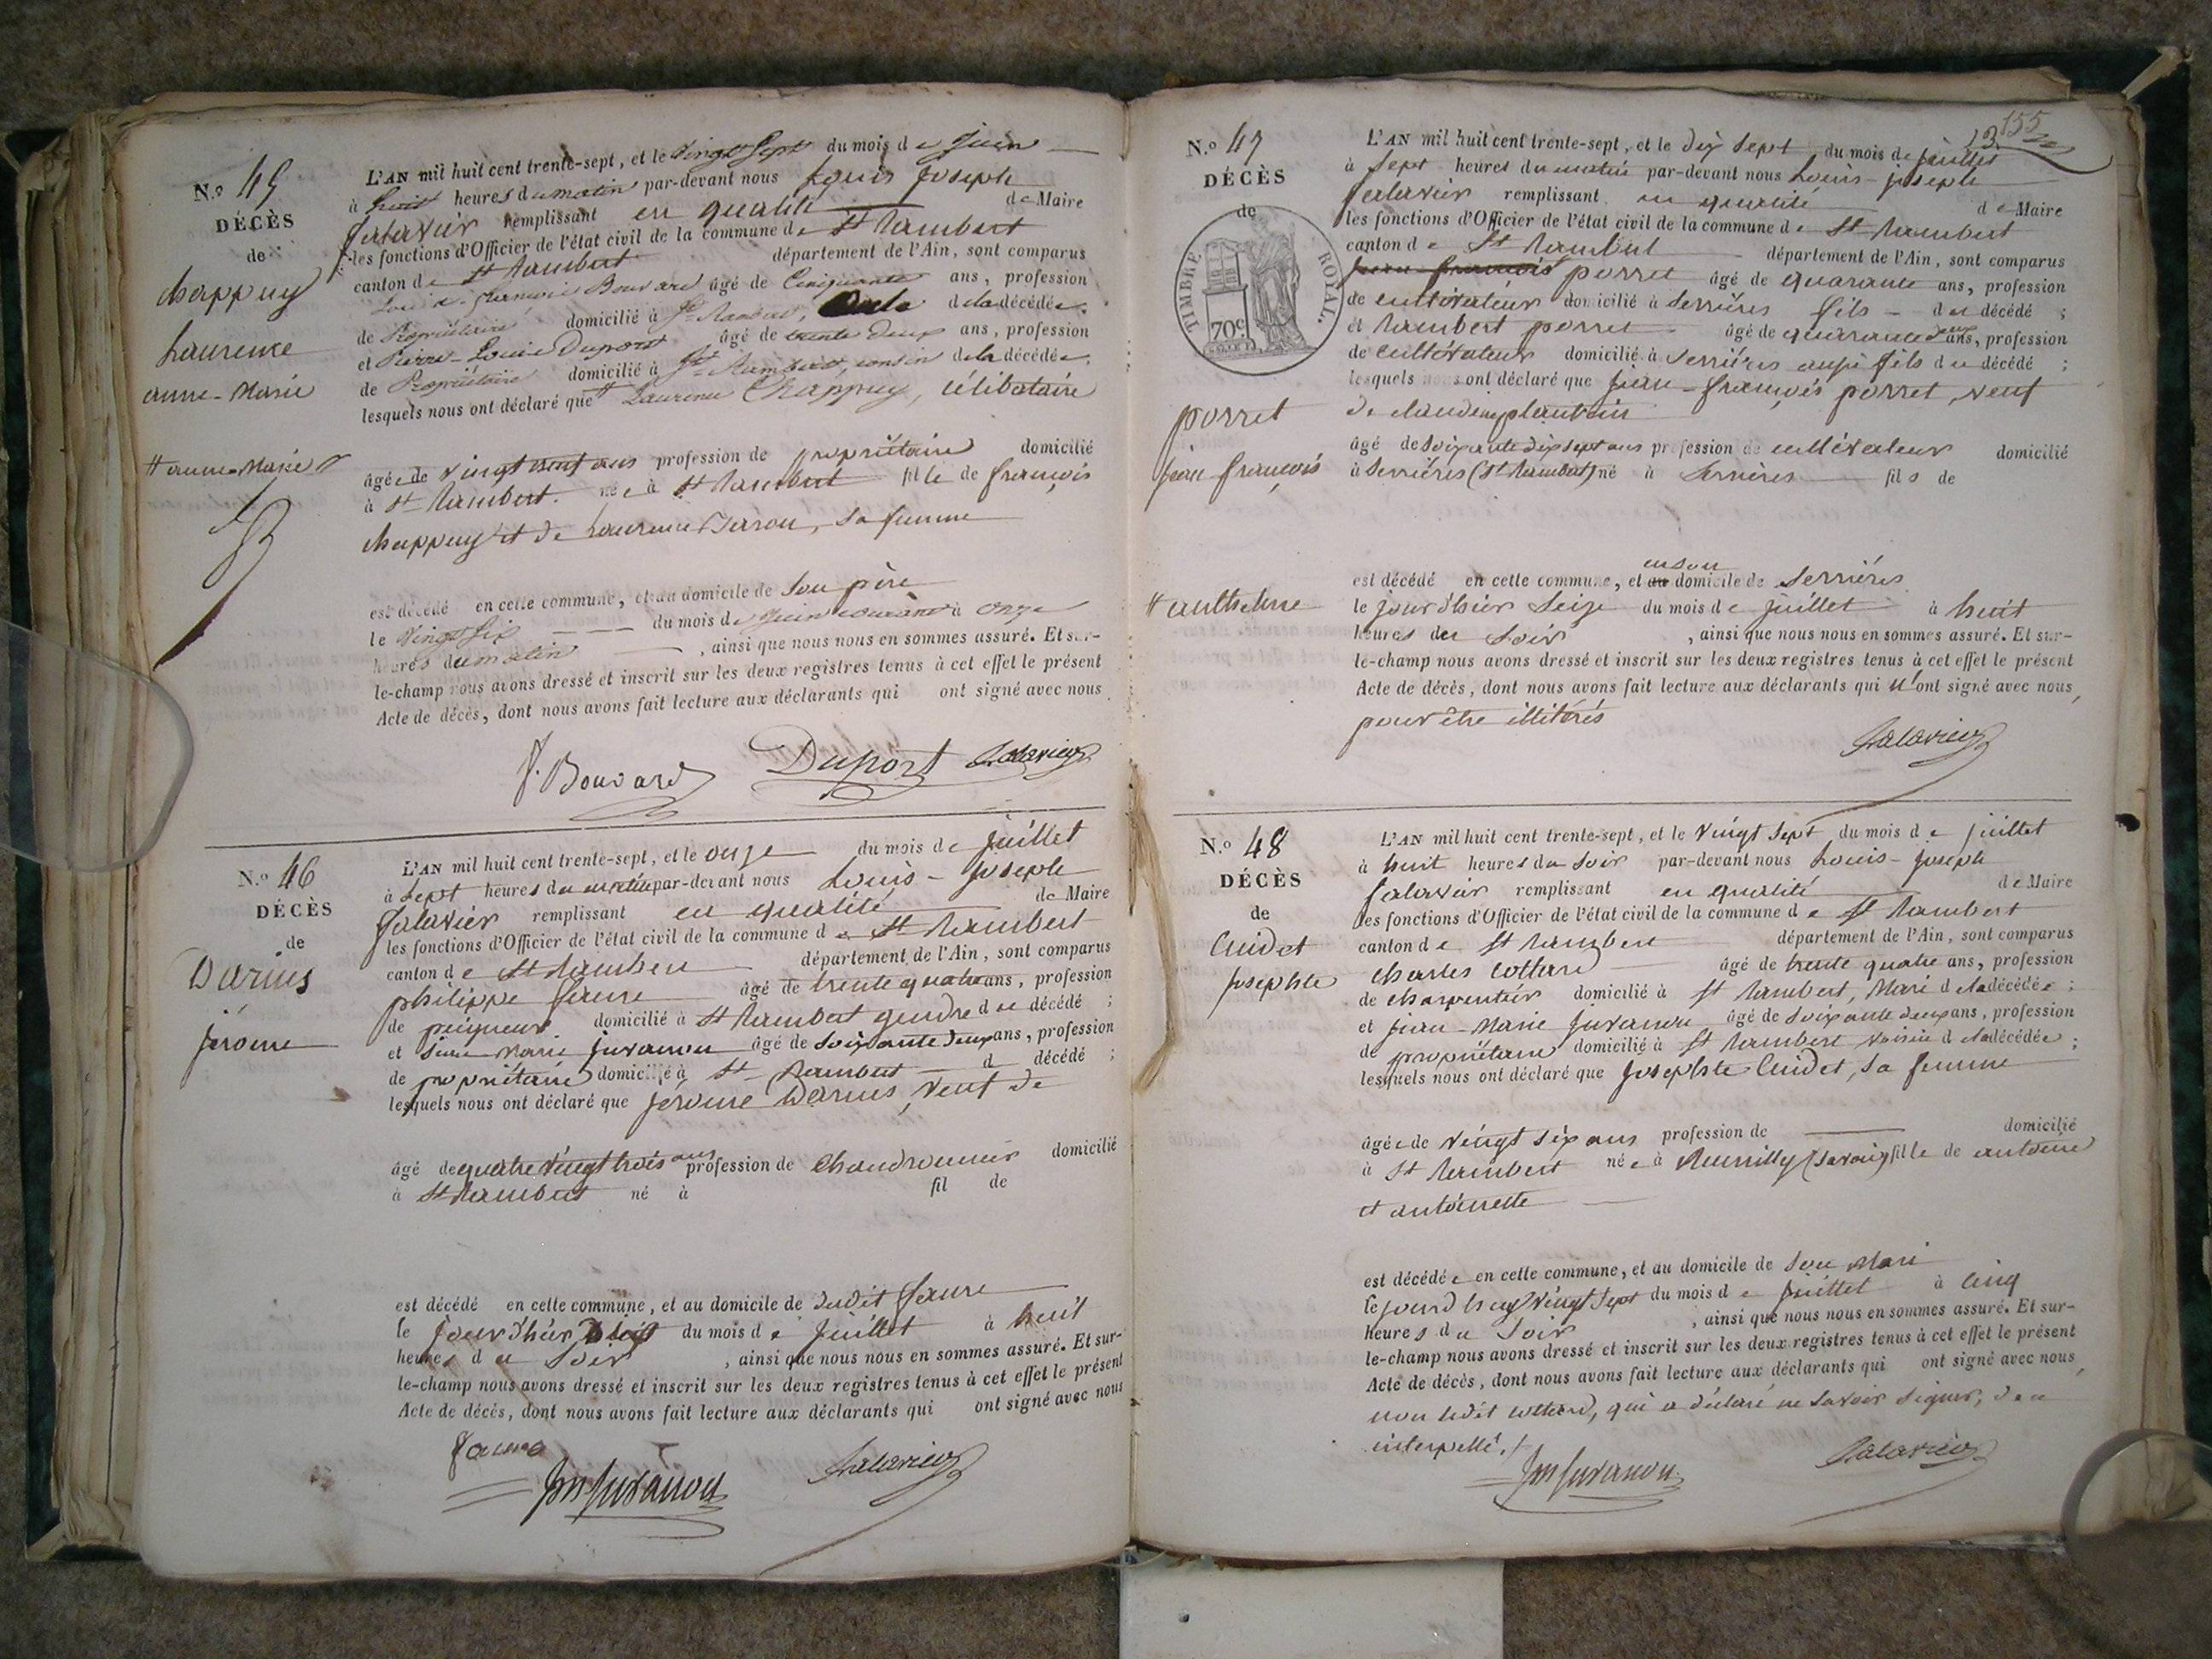 N.º 45
DÉCÈS
de
Chappuy
Laurence
anne-Marie
# anne-Marie
L'AN mil huit cent trente-sept, et le Vingt Sept du mois de Juin
à huit heures du matin par-devant nous Louis Joseph
remplissant en qualité de Maire
les fonctions d'Officier de l'état civil de la commune de St Rambert
canton de St Rambert département de l'Ain, sont comparus
Bouvard âgé de Cinquante ans, profession
de Propriétaire domicilié à St Rambert, de la décédée
et Pierre-Louis Duport âgé de trente deux ans, profession
de Propriétaire domicilié à St Rambert, cousin de la décédée
lesquels nous ont déclaré que # Laurence Chappuy, célibataire
âgée de vingt ans profession de propriétaire domicilié
à St Rambert. née à St Rambert fille de françois
chappuy et de Laurence sa femme
est décédé en cette commune, et au domicile de Son père
le Vingt Six du mois de Juin courant à onze
heures du matin , ainsi que nous nous en sommes assuré. Et sur-
le-champ nous avons dressé et inscrit sur les deux registres tenus à cet effet le présent
Acte de décès, dont nous avons fait lecture aux déclarants qui ont signé avec nous
f. Bouvard Duport
N.º 46
DÉCÈS
de
Darius
jérome
L'AN mil huit cent trente-sept, et le onze du mois de juillet
à Sept heures du matin par-devant nous Louis-Joseph
remplissant en qualité de Maire
les fonctions d'Officier de l'état civil de la commune de St Rambert
canton de St Rambert département de l'Ain, sont comparus
philippe faure âgé de trente quatre ans, profession
de peigneur domicilié à St Rambert gendre du décédé ;
et Jean Marie juvanon âgé de Soixante deux ans, profession
de propriétaire domicilié à St Rambert d décédé ;
lesquels nous ont déclaré que jérome Darius, veuf de
âgé de quatre vingt trois ans profession de Chaudronnier domicilié
à St Rambert né à fil de
est décédé en cette commune, et au domicile de dudit faure
le jour d'hier du mois de juillet à huit
heures du Soir , ainsi que nous nous en sommes assuré. Et sur-
le-champ nous avons dressé et inscrit sur les deux registres tenus à cet effet le présent
Acte de décès, dont nous avons fait lecture aux déclarants qui ont signé avec nous
faure
Jm Juvanon
155
N.º 47
DÉCÈS
de
TIMBRE ROYAL.
70c
porret
jean françois
# anthelme
L'AN mil huit cent trente-sept, et le dix Sept du mois de juillet
à Sept heures du matin par-devant nous Louis-joseph
remplissant en qualité de Maire
les fonctions d'Officier de l'état civil de la commune de St Rambert
canton de St Rambert département de l'Ain, sont comparus
jean françois porret âgé de quarante ans, profession
de cultivateur domicilié à Serrières fils du décédé ;
et Rambert porret âgé de quarante deux ans, profession
de cultivateur domicilié à Serrières aussi fils du décédé ;
lesquels nous ont déclaré que jean-françois porret, veuf
de plantin
âgé de Soixante dix sept ans profession de cultivateur domicilié
à Serrières (St Rambert) né à Serrières fils de
en son
est décédé en cette commune, et au domicile de Serrières
le jour d'hier Seize du mois de juillet à huit
heures du Soir , ainsi que nous nous en sommes assuré. Et sur-
le-champ nous avons dressé et inscrit sur les deux registres tenus à cet effet le présent
Acte de décès, dont nous avons fait lecture aux déclarants qui n'ont signé avec nous,
pour être illitérés
N.º 48
DÉCÈS
de
Cuidet
josephte
L'AN mil huit cent trente-sept, et le Vingt Sept du mois de juillet
à huit heures du Soir par-devant nous Louis-joseph
remplissant en qualité de Maire
les fonctions d'Officier de l'état civil de la commune de St Rambert
canton de St Rambert département de l'Ain, sont comparus
Charles Cottard âgé de trente quatre ans, profession
de charpentier domicilié à St Rambert, Mari de la décédée ;
et jean-Marie juvanon âgé de Soixante deux ans, profession
de propriétaire domicilié à St Rambert voisin de la décédée ;
lesquels nous ont déclaré que josephte Cuidet, sa femme
âgée de vingt six ans profession de domicilié
à St Rambert née à Rumilly (Savoie) fille de antoine
et antoinette
est décédée en cette commune, et au domicile de Son Mari
le jourd'huy Vingt Sept du mois de juillet à Cinq
heures du Soir , ainsi que nous nous en sommes assuré. Et sur-
le-champ nous avons dressé et inscrit sur les deux registres tenus à cet effet le présent
Acte de décès, dont nous avons fait lecture aux déclarants qui ont signé avec nous,
non ledit Cottard, qui a déclaré ne Savoir Signer, de ce
interpellé.
Jm Juvanon